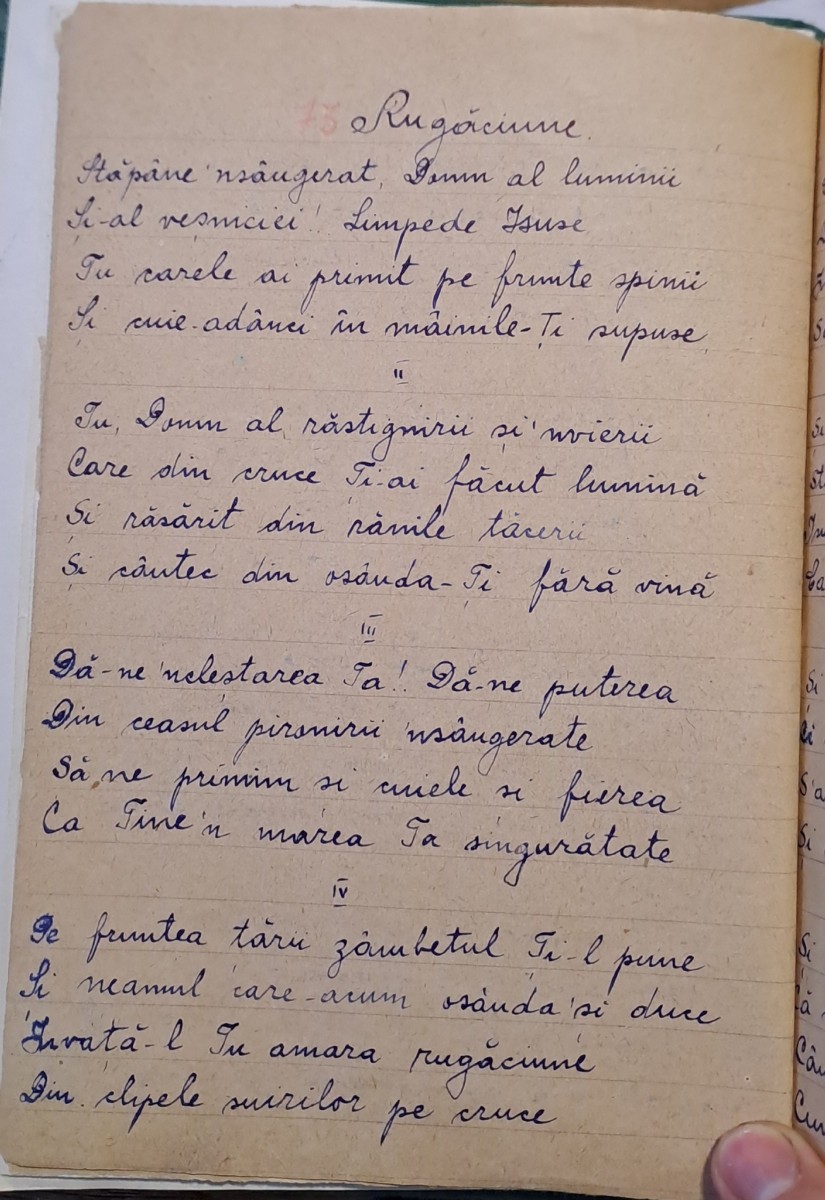 13 Rugăciune.
Stăpâne 'nsângerat, Domn al luminii
Și-al veșniciei! Limpede Isuse
Tu carele ai primit pe frunte spinii
Și cuie-adânci în mâinile-Ți supuse
II
Tu, Domn al răstignirii și 'nvierii
Care din cruce Ți-ai făcut lumină
Și răsărit din rănile tăcerii
Și cântec din osânda-Ți fără vină
III
Dă-ne 'ncleștarea Ta! Dă-ne puterea
Din ceasul pironirii 'nsângerate
Să ne primim si cuiele si fierea
Ca Tine 'n marea Ta singurătate
IV
Pe fruntea țării zâmbetul Ti-l pune
Si neamul care-acum osânda 'si duce
Învață-l Tu amara rugăciune
Din clipele suirilor pe cruce